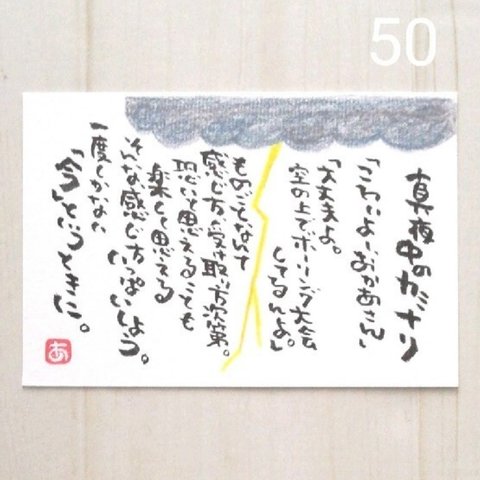 50
真夜中のカミナリ
「こわいよーおかあさん」
「大丈夫よ。
空の上でボーリング大会
してるんよ。」
ものごとなんて
感じ方、受け取り方次第。
恐いと思えることも
楽しく思える
そんな感じ方いっぱいしよう。
一度しかない
「今」というときに。
あ